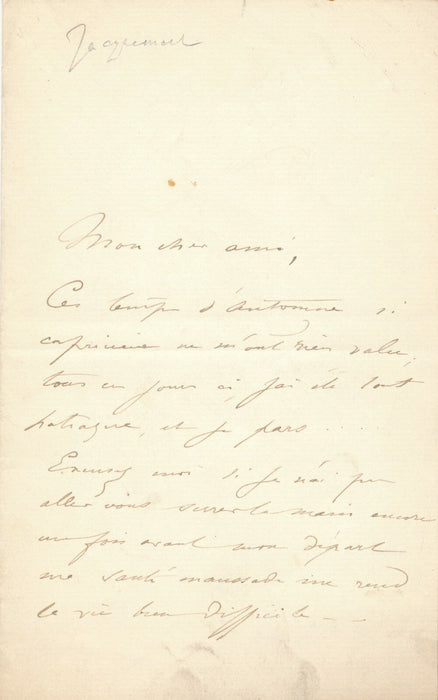 Jacquemart
Mon cher ami,
Ces temps d'Automne si
capricieux ne m'ont rien valu,
tous ces jours ci, j'ai été tout
patraque, et je pars....
Excusez moi si je n'ai pu
aller vous serrer la main encore
une fois avant mon départ
ma santé maussade me rend
la vie bien difficile - -